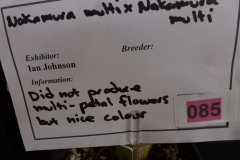 Nakamura multi x Nakamura
multi
Exhibitor: Breeder:
Ian Johnson
Information:
Did not produce
multi-petal flowers
but nice colour
085